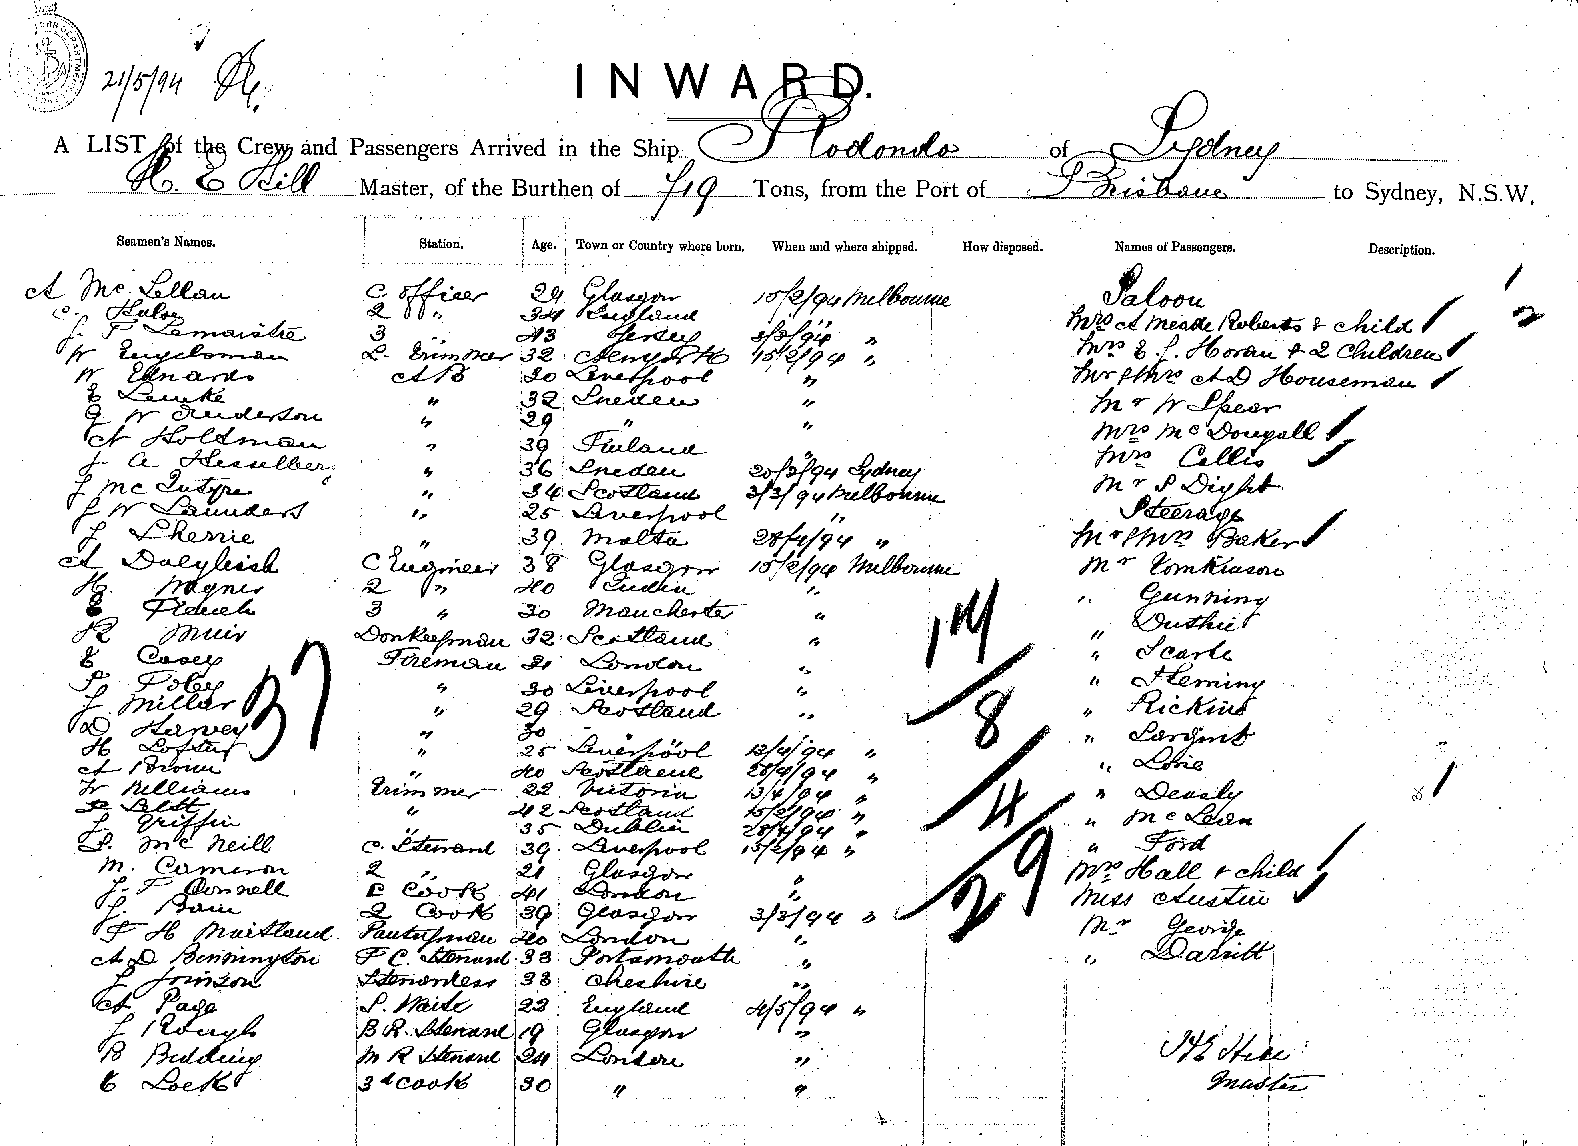 21/5/94
INWARD.
A LIST of the Crew and Passengers Arrived in the Ship Rodondo of Sydney
H. E Hill Master, of the Burthen of 719 Tons, from the Port of Brisbane to Sydney, N.S.W.
Seamen's Names. Station. Age. Town or Country where born. When and where shipped. How disposed. Names of Passengers. Description.
A McLellan C. Officer 29 Glasgow 15/2/94 Melbourne Saloon
2 " 34 England " Mrs A Meade Roberts & child 2
J. F Lemaistre 3 " 43 Jersey 3/3/94 " Mrs E. J. Horan & 2 Children
W Engelsman L. Trimmer 32 15/2/94 " Mr & Mrs A D Houseman
W Edwards A B 30 Liverpool " Mr W Spear
E Lemke " 32 Sweden " Mrs McDougall
G W Anderson " 29 " " Mrs Collis
A Holdman " 39 Finland " Mr S Dight
J. A Hesselberg " 36 Sweden 20/3/94 Sydney Steerage
J McIntyre " 34 Scotland 3/3/94 Melbourne Mr & Mrs Baker
J W Saunders " 25 Liverpool " Mr Tomkinson
J Sherrie " 39 Malta 28/4/94 " " Gunning
A Dalgleish C Engineer 38 Glasgow 15/2/94 Melbourne " Duthie
H. Wagner 2 " 40 India " " Searle
3 " 30 Manchester " " Fleming
R Muir Donkeyman 32 Scotland " " Rickins
E Casey Fireman 31 London " " Sargent
P Foley " 30 Liverpool "
J Millar " 29 Scotland " " Deasly
D Harvey " 30 " " " McLean
H Loftus " 25 Liverpool 13/4/94 " " Ford
A Brown " 40 Scotland 28/4/94 " Mrs Hall & child
W Williams Trimmer 22 Victoria 13/4/94 " Miss Austin
" 42 Scotland 15/2/94 " Mr George
J. Griffin " 35 Dublin 28/4/94 "
McNeill C. Steward 39 Liverpool 15/2/94 "
M. Cameron 2 " 21 Glasgow "
J. F Connell C Cook 41 London "
J. Bain 2 Cook 39 Glasgow 3/3/94 "
F H Maitland Pantryman 40 London "
A D Bennington F C. Steward 33 Portsmouth "
J Johnson Stewardess 33 Cheshire "
A Page S. Waite 22 England 4/5/94 "
J Rough B R. Steward 19 Glasgow "
B Bedding M R Steward 24 London "
E Lock 3d Cook 30 " "
37
14
8
4
29
H E Hill
Master